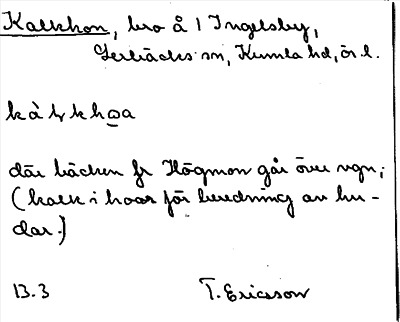 Kalkhon, bro å 1 Ingelsby,
Lerbäcks sn, Kumla hd, ör l.
kàlkhoa
där bäcken fr Högmon går över vgn;
(kalk i hoar för beredning av hu-
dar.)
13.3 T. Ericsson